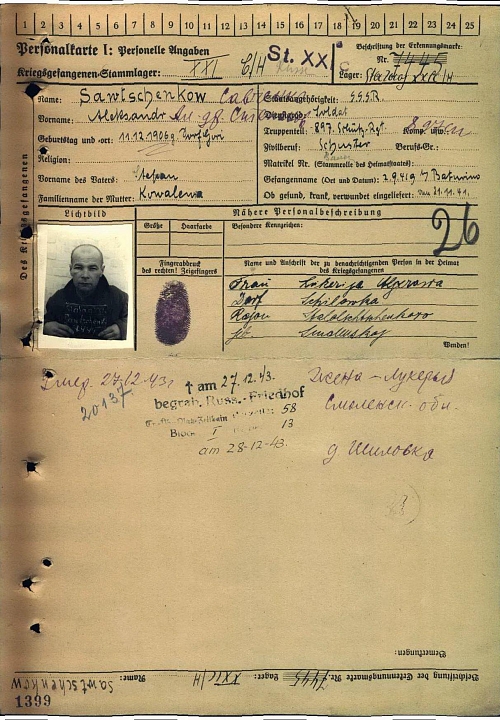 1 2 3 4 5 6 7 8 9 10 11 12 13 14 15 16 17 18 19 20 21 22 23 24 25
Personalkarte I: Personelle Angaben
Beschriftung der Erkennungsmarke:
St. XX
Nr. 7445
Kriegsgefangenen-Stammlager: XXI C/H
Lager: Stalag XXI C/H
Des Kriegsgefangenen
Name: Sawtschenkow
Staatsangehörigkeit: S.S.S.R.
Vorname: Aleksandr
Dienstgrad: Soldat
Geburtstag und -ort: 11.12.1906
Truppenteil: 897. Schütz. Rgt. Komp. usw.:
Religion:
Zivilberuf: Schuster Berufs-Gr.:
Matrikel Nr. (Stammrolle des Heimatstaates):
Vorname des Vaters: Stepan
Gefangennahme (Ort und Datum): 2.9.419 Baturino
Familienname der Mutter: Kowalewa
Ob gesund, krank, verwundet eingeliefert: 21.11.41.
Lichtbild
Nähere Personalbeschreibung
26
Größe
Haarfarbe
Besondere Kennzeichen:
Fingerabdruck
des rechten! Zeigefingers
Name und Anschrift der zu benachrichtigenden Person in der Heimat
des Kriegsgefangenen
Frau
Dorf Schilowka
Rajon
Wenden!
Умер 27/12 43г
20137
† am 27.12.43.
begrab. Russ.-Friedhof
58
Block I 13
am 28-12-43.
Жена - Лукерья
Смоленск. обл.
д Шиловка
Bemerkungen:
Beschriftung der Erkennungsmarke Nr. 7445 Lager: XXI C/H Name: Sawtschenkow
1399